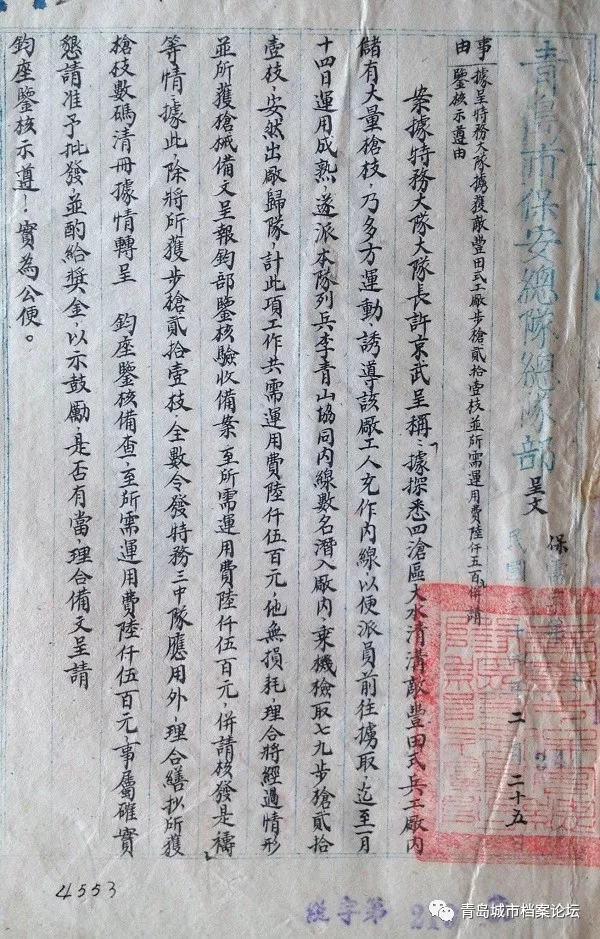 青島市保安總隊總隊部 呈文
事由
據呈特務大隊擄獲敵豐田式工廠步槍貳拾壹枝並所需運用費陸仟五百併請
鑒核示遵由
民國
二月二十五日
案據特務大隊大隊長許京武呈稱：「據探悉四滄區大水清溝敵豐田式兵工廠內
儲有大量槍枝，乃多方運動、誘導該廠工人充作內線以便派員前往擄取，迄至一月
十四日運用成熟，遂派本隊列兵李青山協同內線數名潛入廠內，乘機檢取七九步槍貳拾
壹枝，安然出廠歸隊，計此項工作共需運用費陸仟伍百元，他無損耗，理合將經過情形
並所獲槍械備文呈報鈞部鑒核驗收備案，至所需運用費陸仟伍百元，併請核發是禱」
等情，據此，除將所獲步槍貳拾壹枝全數令發特務三中隊應用外，理合繕抄所獲
槍枝數碼清冊據情轉呈 鈞座鑒核備查，至所需運用費陸仟伍百元，事屬確實
懇請准予批發，並酌給獎金，以示鼓勵，是否有當，理合備文呈請
鈞座鑒核示遵！實為公便。
4553
總字第 213
青岛城市档案论坛